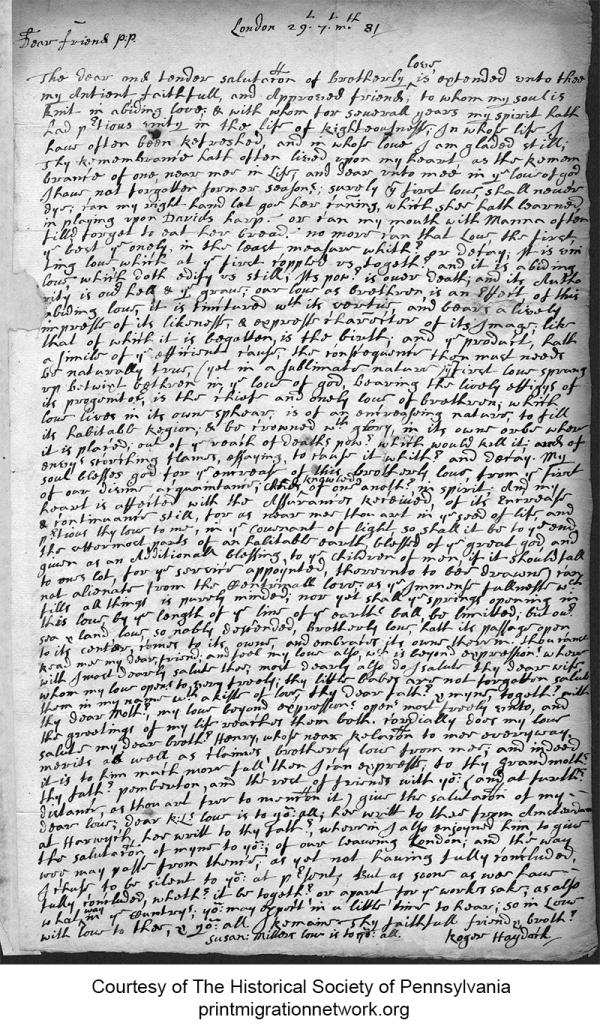 London 29th 7th mth 81
Dear Friend p.p.
The dear and tender salutation of Brotherly love is extended unto thee
my Antient faithfull, and Approved friend, to whom my soul is
knit in abiding love; & with whom for severall years my spirit hath
had pretious unity in the life of righteousness; In whose life I
have often been refreshed, and in whose love I am gladed still;
Thy remembrance hath often lived upon my heart as the remem
brance of one near mee in life, and dear unto mee in ye love of god
I have not forgotten former seasons; surely ye first love shall never
dye; can my right hand let goe her cuning, which shee hath learned
in playing upon Davids harp or can my mouth with Manna often
fill'd forget to eat her bread: no more can that Love the first,
ye best ye onely, in the least measure whither or decay; It is uni
ting love which at ye first coppled us togethr and it is abiding
love which doth edify us still; Its powr is over death, and its Autho
rity is ovr hell & ye grave; our love as brethren is an Effect of this
abiding love, it is tinctured with its vertue, and bears a lively
impresse of its likeness, & expresse charecter of its Image, like
that of which it is begotten, is the birth; and ye product, hath
a simile of ye efficient cause, the consequents then must needs
be naturally true, (yet in a sublimate nature) ye first love sprung
up betwixt bethren in ye love of god, bearing the lively effigys of
its progenitor, is the chiefe and onely love of brethren; which
love lives in its owne sphear, is of an encreasing nature, to fill
its habitable Region; & be crowned with glory, in its owne orbe where
it is placed; out of ye reach of deaths powr which would kill it; and of
envys scorching flames, essaying, to cause it whithr and decay. My
soul blesses god for ye encrease of this brotherly love, from ye first
of our divine acquaintance, knowledg of one anothr in spirit And my
heart is affected with the Assurances received of its Encrease
& continuance still, for as near mee thou art in ye seed of life and
pretious thy love to me, in ye covenant of light so shall it be to ye end
the uttermost parts of an habitable earth, blessed of ye great god, and
given as an Additionall blessing, to ye children of men, if it should fall
to ones lot, for ye service appointed, thereunto to bee drawne) can
not alienate from the love: as ye Immense fullness wch
fills all things is purely minded; nor yet shall ye springs opening in
this love by ye length of ye line of ye earths ball be limited; but ovr
sea & land, love so nobly descended, Brotherly love, hath its passage open
to its center, comes to its owne, and embraces its owne therein: thou canst
read mee my dear friend, and feel my love also, wch is beyond expression; where
with I most dearly salute thee, most dearly also do I salute thy dear wife
whom my love opens to every freely; thy little babes are not forgotten salut
them in my name with a kisse of love, thy dear fathr & myne, togethr with
thy dear Mothr, my love beyond expression opens most freely unto, and
the greetings of my life reaches them both. cordially does my love
salute my dear brothr Henry, whose near Relation to mee everyway
merits as well as claimes brotherly love from mee, and indeed
it is to him much more full then I can expresse, to thy grandmothr
thy fathr pemberton, and the rest of friends with you (and at further
distance, as thou art free to mention it) give the salutation of my
dear love; dear love is to you all; hee writt to thee from Amsterdam
at Harwich, hee writt to thy fathr, wherein I also enjoyned him, to give
the salutation of myne to you; of our leaving London; and the way
wee may passe from thence, as yet not having fully concluded,
I chuse to be silent to you at present, But as soone as wee have
fully concluded, whethr it be togethr or apart for ye works sake, as also
what way in ye Countrey, you may expect in a little time to hear; so in Love
with love to thee, & you all I remaine Thy faithfull friend & brothr
Susan: Millers love is to you: all. Roger Haydock
Courtesy of The Historical Society of Pennsylvania
printmigrationnetwork.org